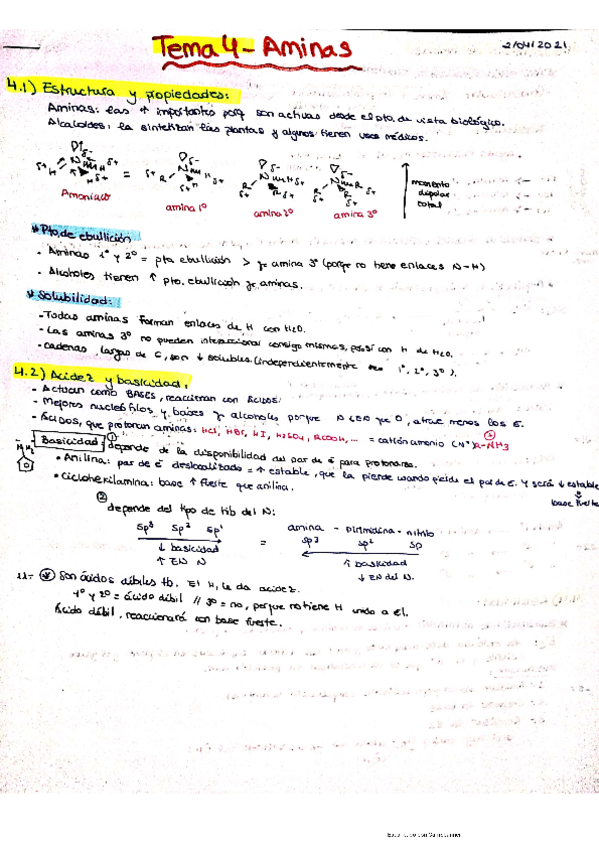 Tema 4 - Aminas
2/04/2021
4.1) Estructura y propiedades:
Aminas: las + importantes porq son activas desde el pto. de vista biológico.
Alcaloides: la sintetizan las plantas y algunos tienen usos médicos.
Amoniaco = amina 1º amina 2º amina 3º
momento dipolar total
* Pto. de ebullición
- Aminas 1º y 2º = pto ebullición > q amina 3º (porqe no tiene enlaces N-H)
- Alcoholes tienen ↑ pto. ebullición qe aminas.
* Solubilidad:
- Todas aminas forman enlaces de H con H2O.
- Las aminas 3º no pueden interaccionar consigo mismas, pero sí con H de H2O.
- Cadenas largas de C, son ↓ solubles. (independientemente sea 1º, 2º, 3º).
4.2) Acidez y basicidad:
- Actúan como BASES, reaccionan con ÁCIDOS.
- Mejores nucleófilos y bases q alcoholes porque N <EN que O, atrae menos los é.
- Ácidos, que protonan aminas: HCl, HBr, HI, H2SO4, RCOOH,... = catión amonio (N+) R-NH3
- Basicidad: ① depende de la disponibilidad del par de é para protonarse.
NH2
• Anilina: par de é deslocalizado = ↑ estable, que la pierde cuando pierde el par de é. Y será ↓ estable
base fuerte
• Ciclohexilamina: base ↑ fuerte que anilina.
② depende del tipo de hib del N:
sp3 sp2 sp1 = amina - pirimidina - nitrilo
sp3 sp2 sp
↓ basicidad
↑ EN N
↑ basicidad
↓ EN del N.
Son ácidos débiles tb. El H, le da acidez.
1º y 2º = ácido débil // 3º = no, porque no tiene H unido a él.
Ácido débil, reaccionará con base fuerte.